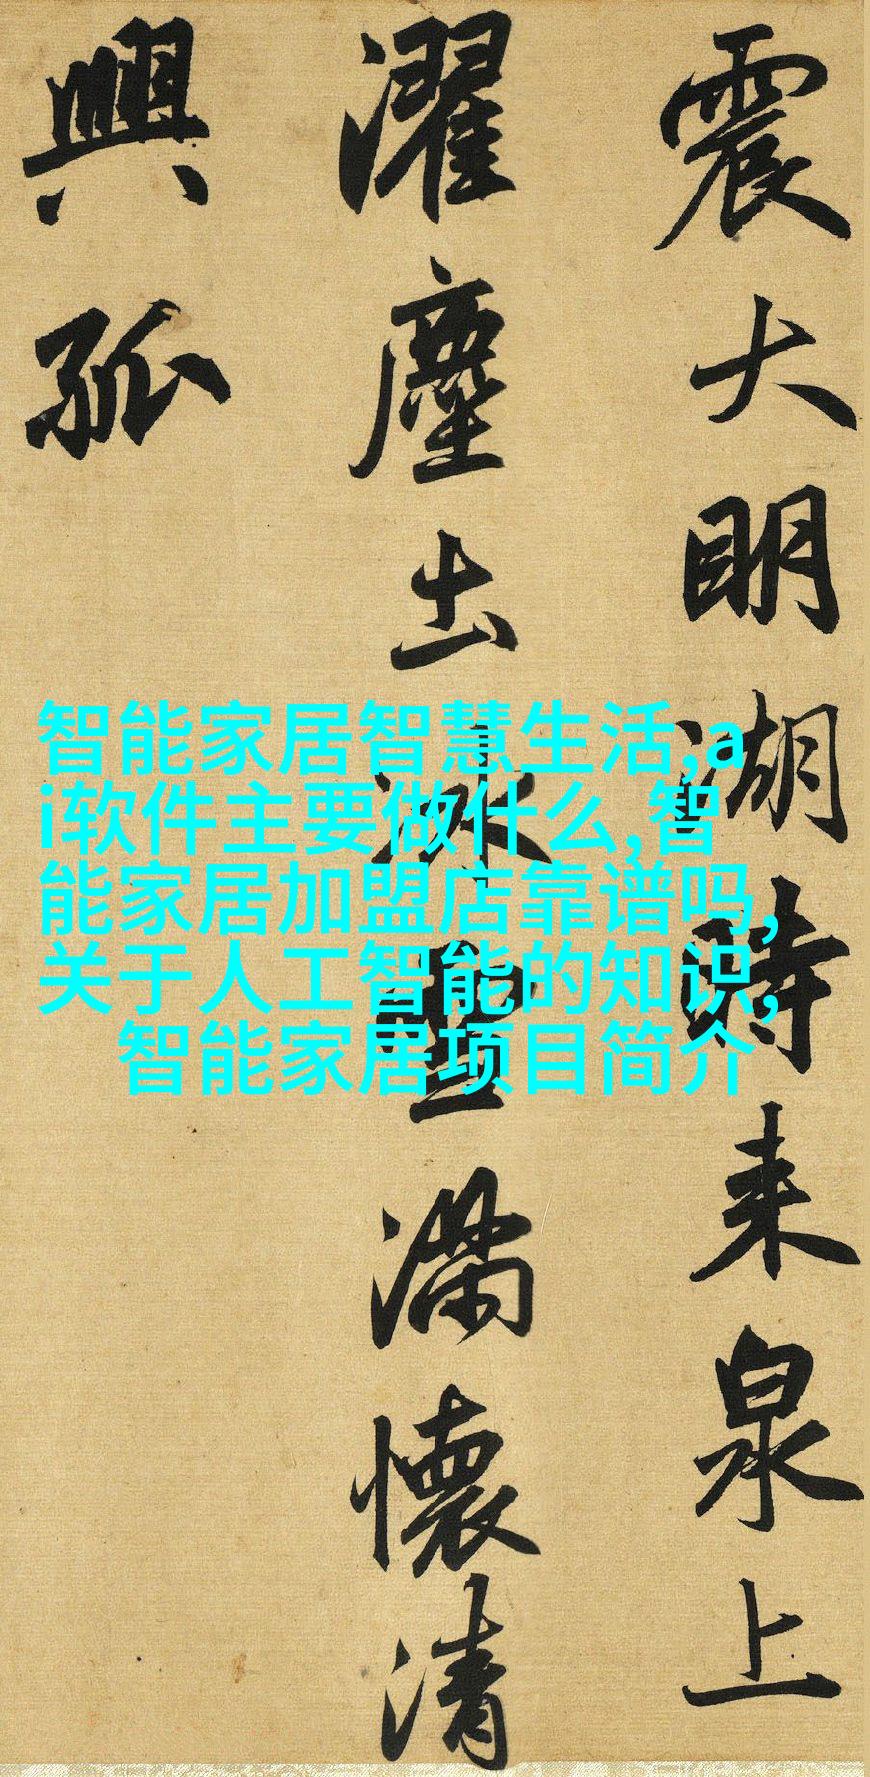 震大明湖時来泉上
濯塵土冰雪滿懷清
興孤
智能家居智慧生活,a
i软件主要做什么,智
能家居加盟店靠谱吗,
关于人工智能的知识,
智能家居项目简介